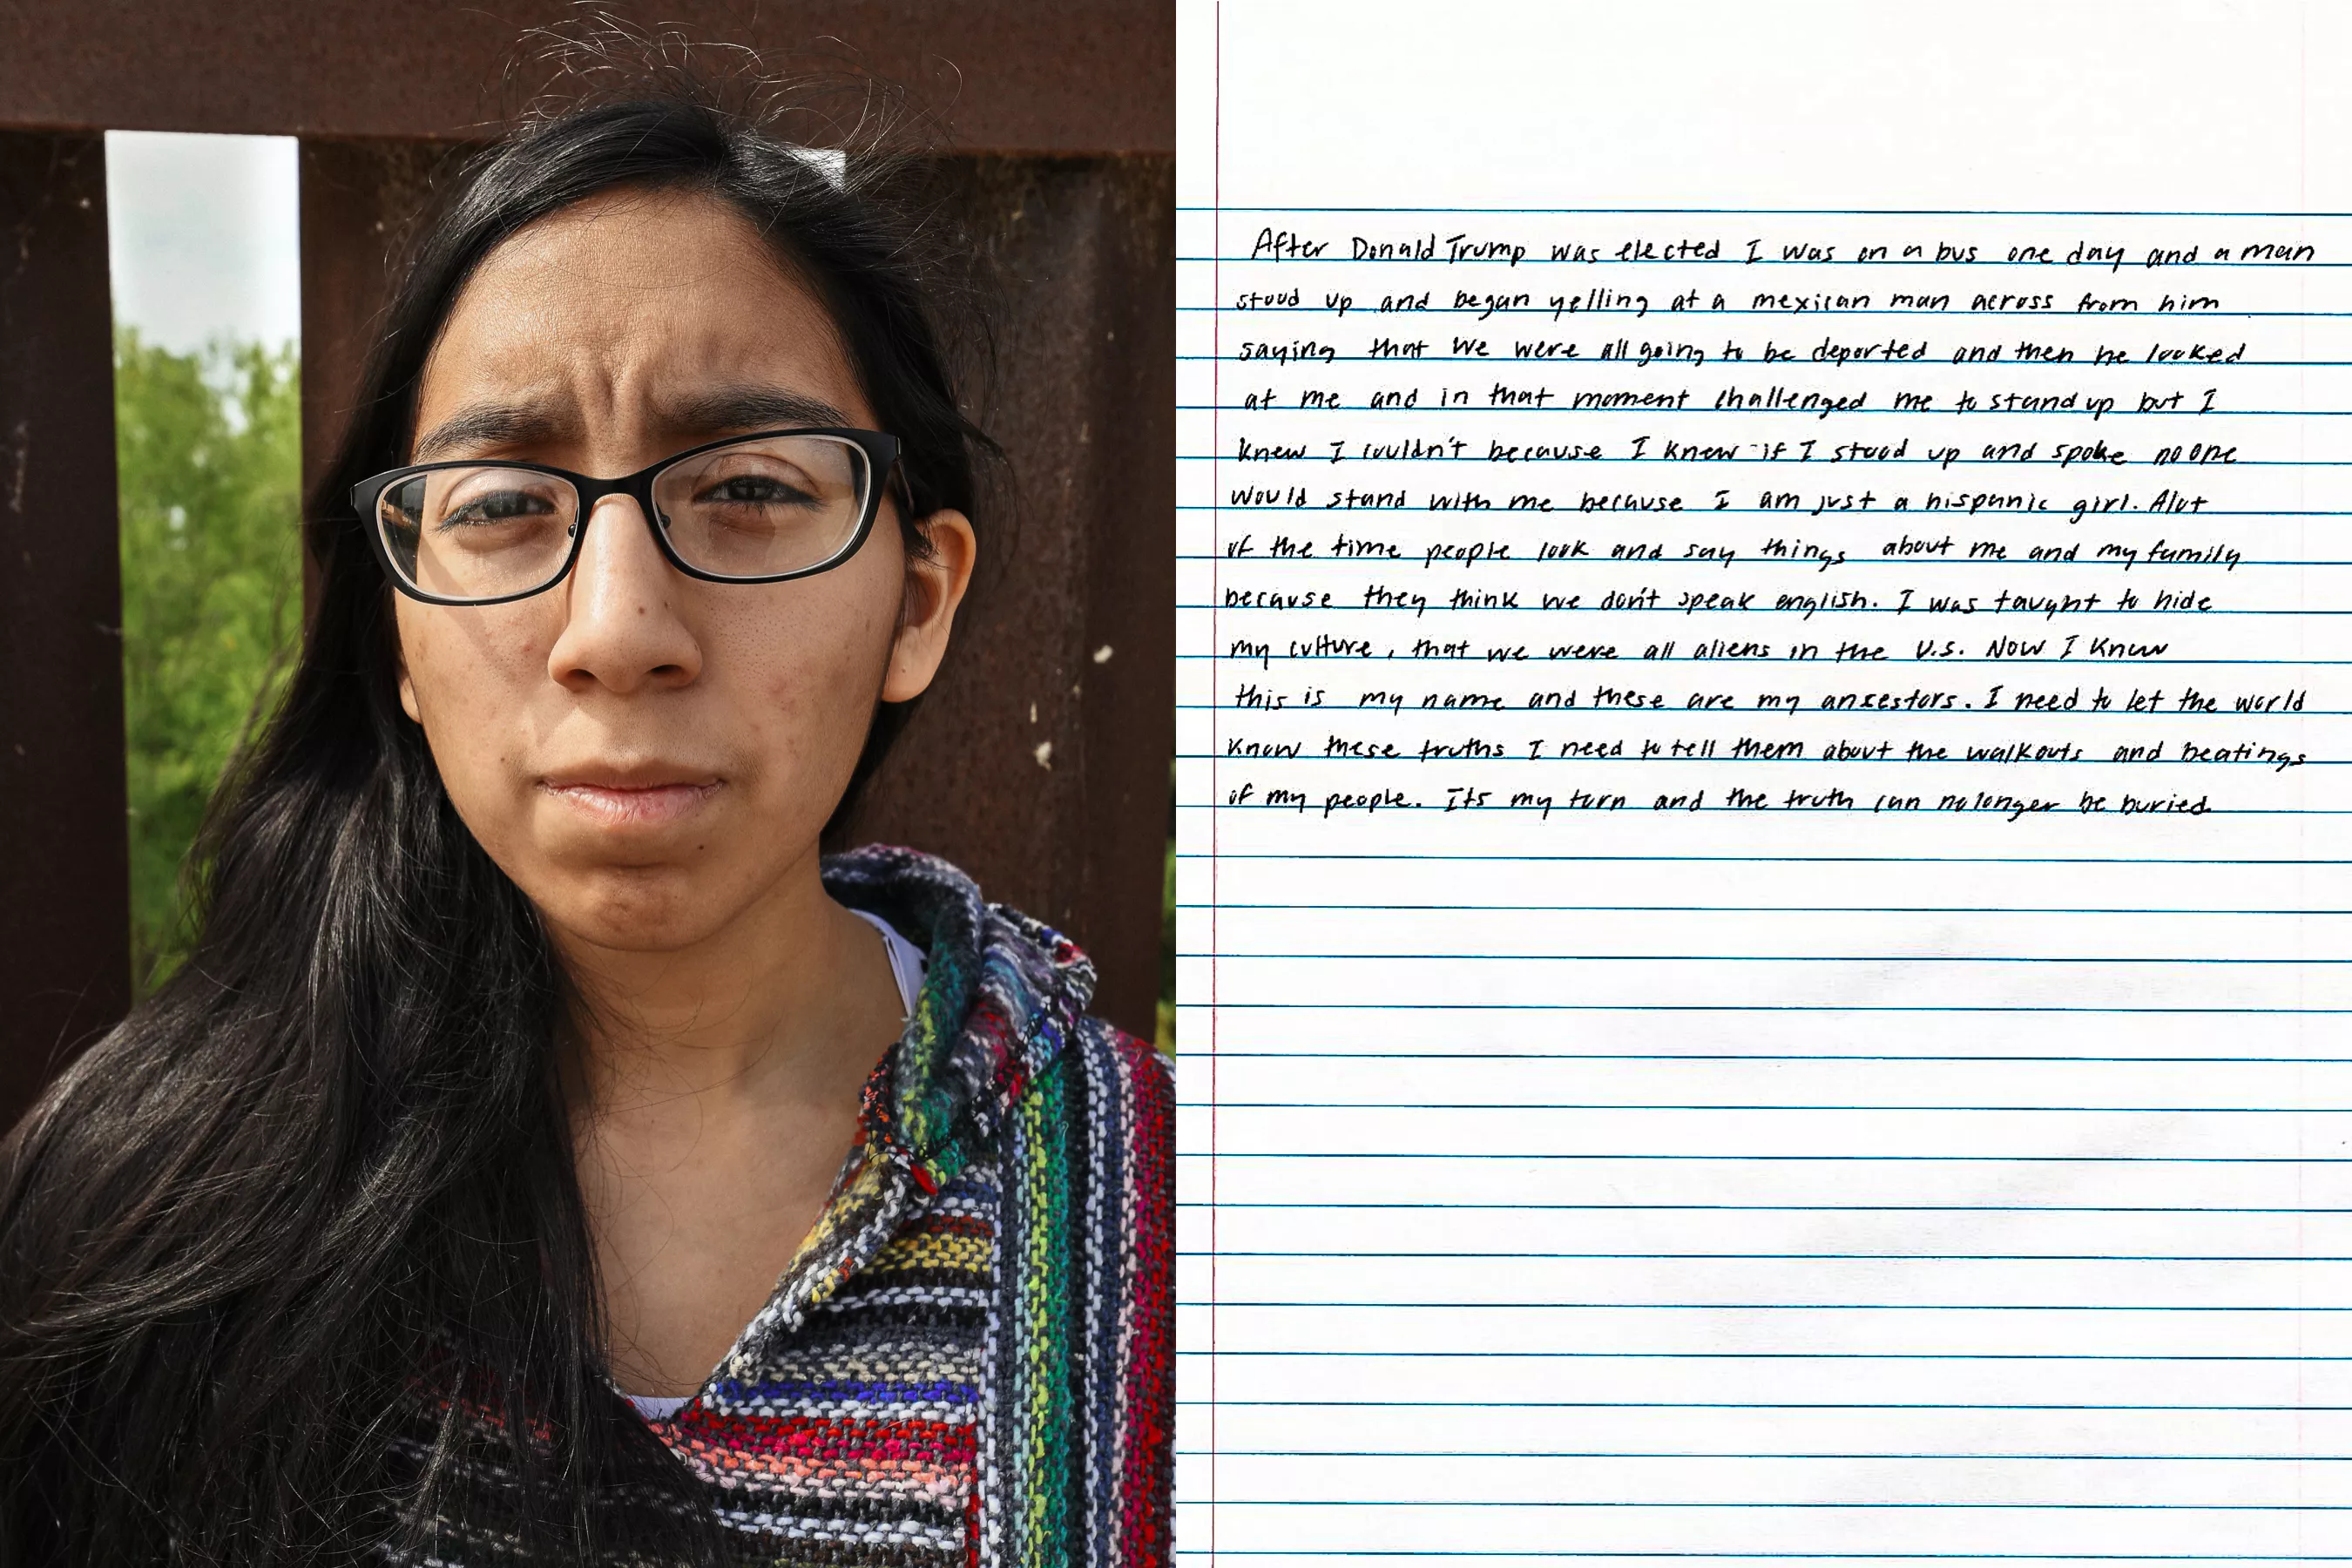 After Donald Trump was elected I was on a bus one day and a man
stood up and began yelling at a mexican man across from him
saying that we were all going to be deported and then he looked
at me and in that moment challenged me to stand up but I
knew I couldn't because I knew if I stood up and spoke no one
would stand with me because I am just a hispanic girl. Alot
of the time people look and say things about me and my family
because they think we don't speak english. I was taught to hide
my culture, that we were all aliens in the U.S. Now I know
this is my name and these are my ancestors. I need to let the world
know these truths I need to tell them about the walkouts and beatings
of my people. Its my turn and the truth can no longer be buried.